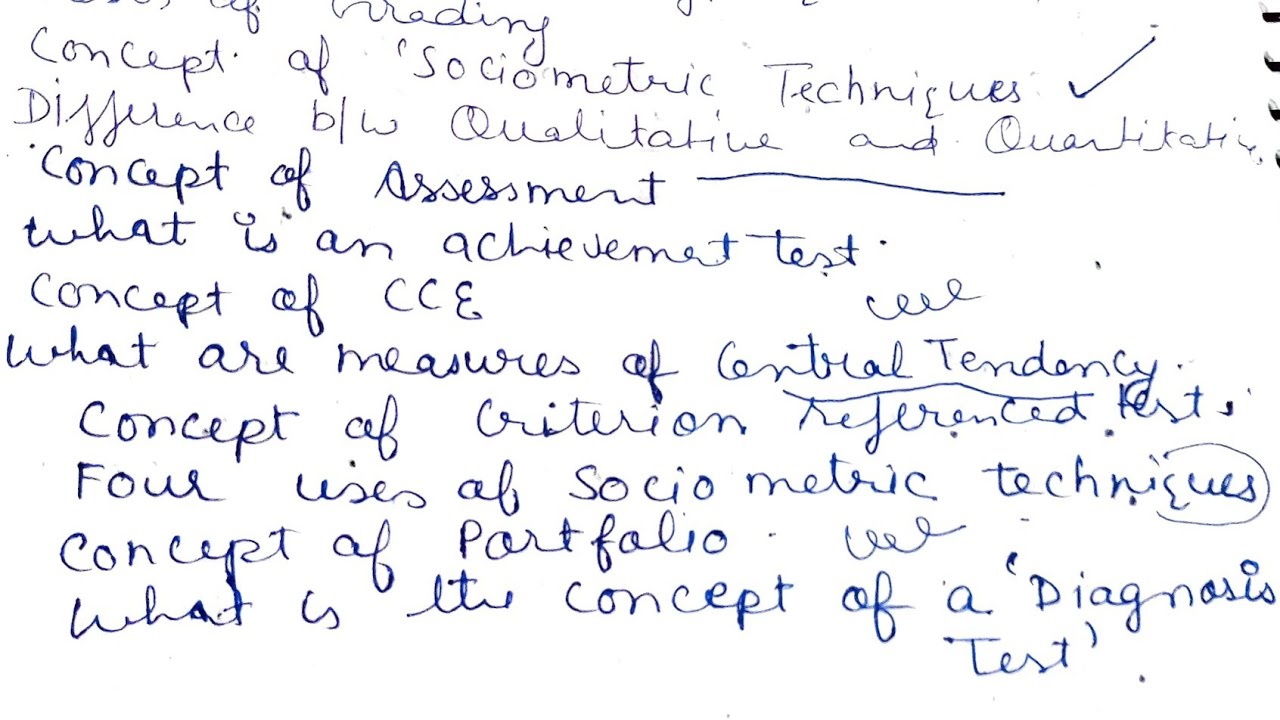 of Grading
Concept of 'Sociometric Techniques ✓
Difference b/w Qualitative and Quantitativ
Concept of Assessment
What is an achievemet test.
Concept of CCE
What are measures of Central Tendency.
Concept of Criterion referenced test.
Four uses of Socio metric techniques
Concept of Portfolio.
What is the concept of a 'Diagnosis
Test'